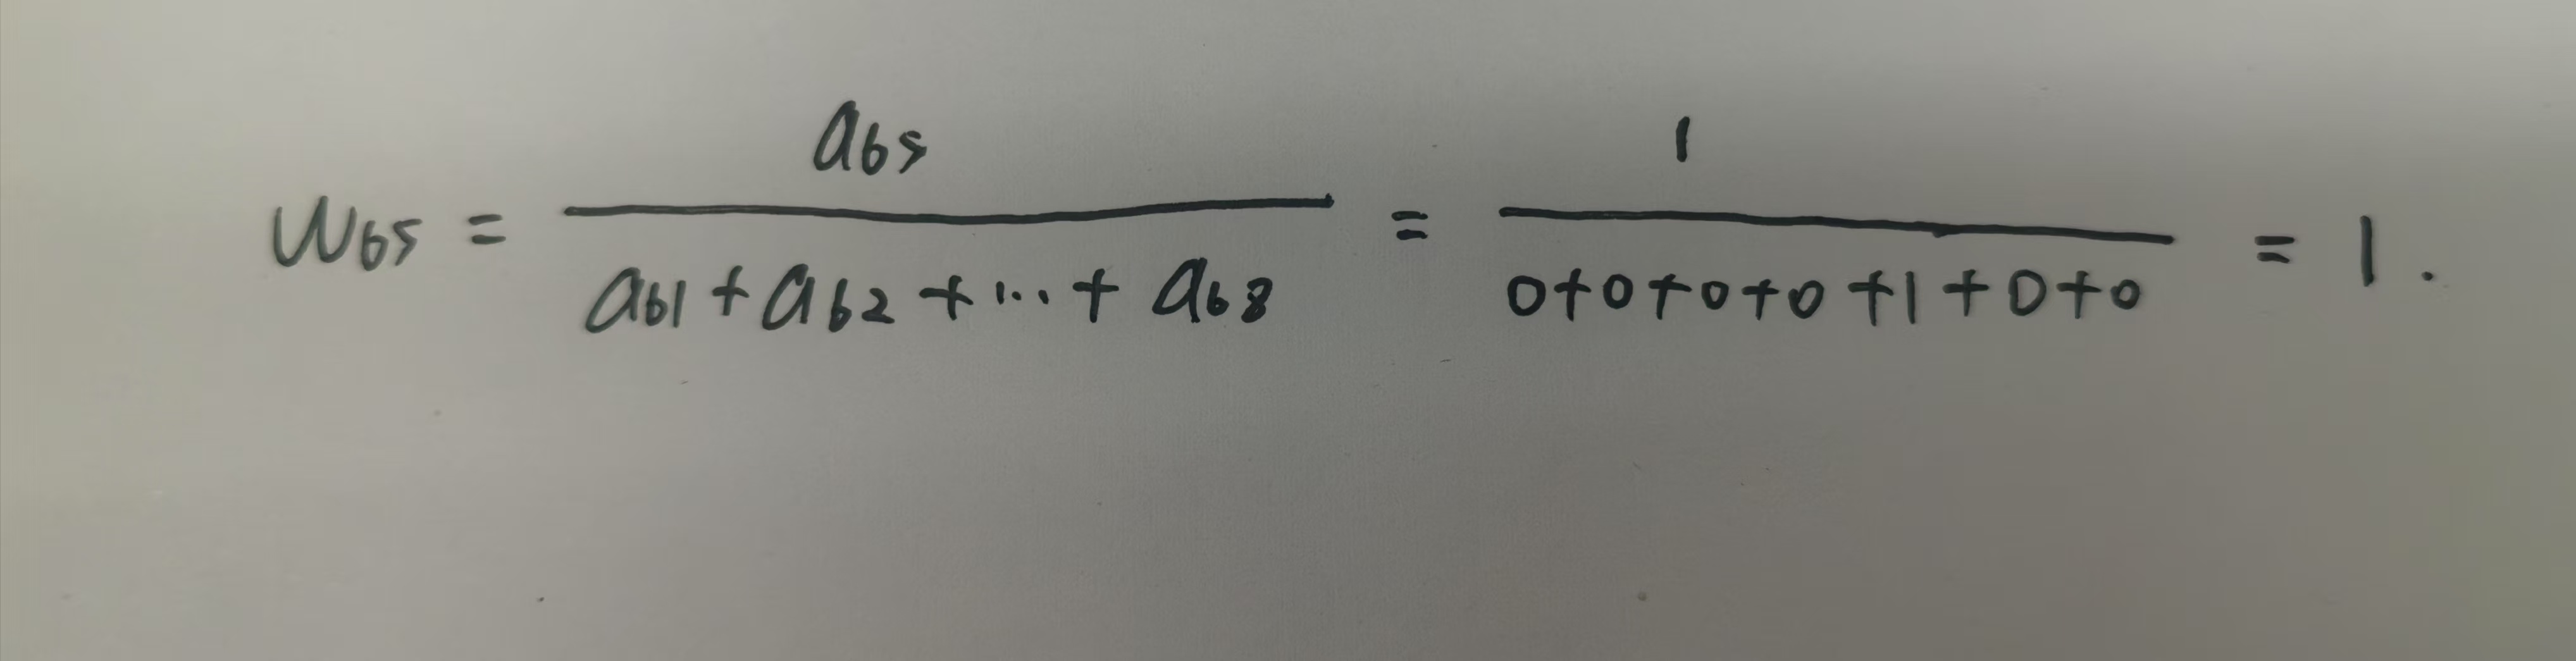 W₆₅ = a₆₅ / (a₆₁ + a₆₂ + ... + a₆₈) = 1 / (0+0+0+0+1+0+0) = 1.